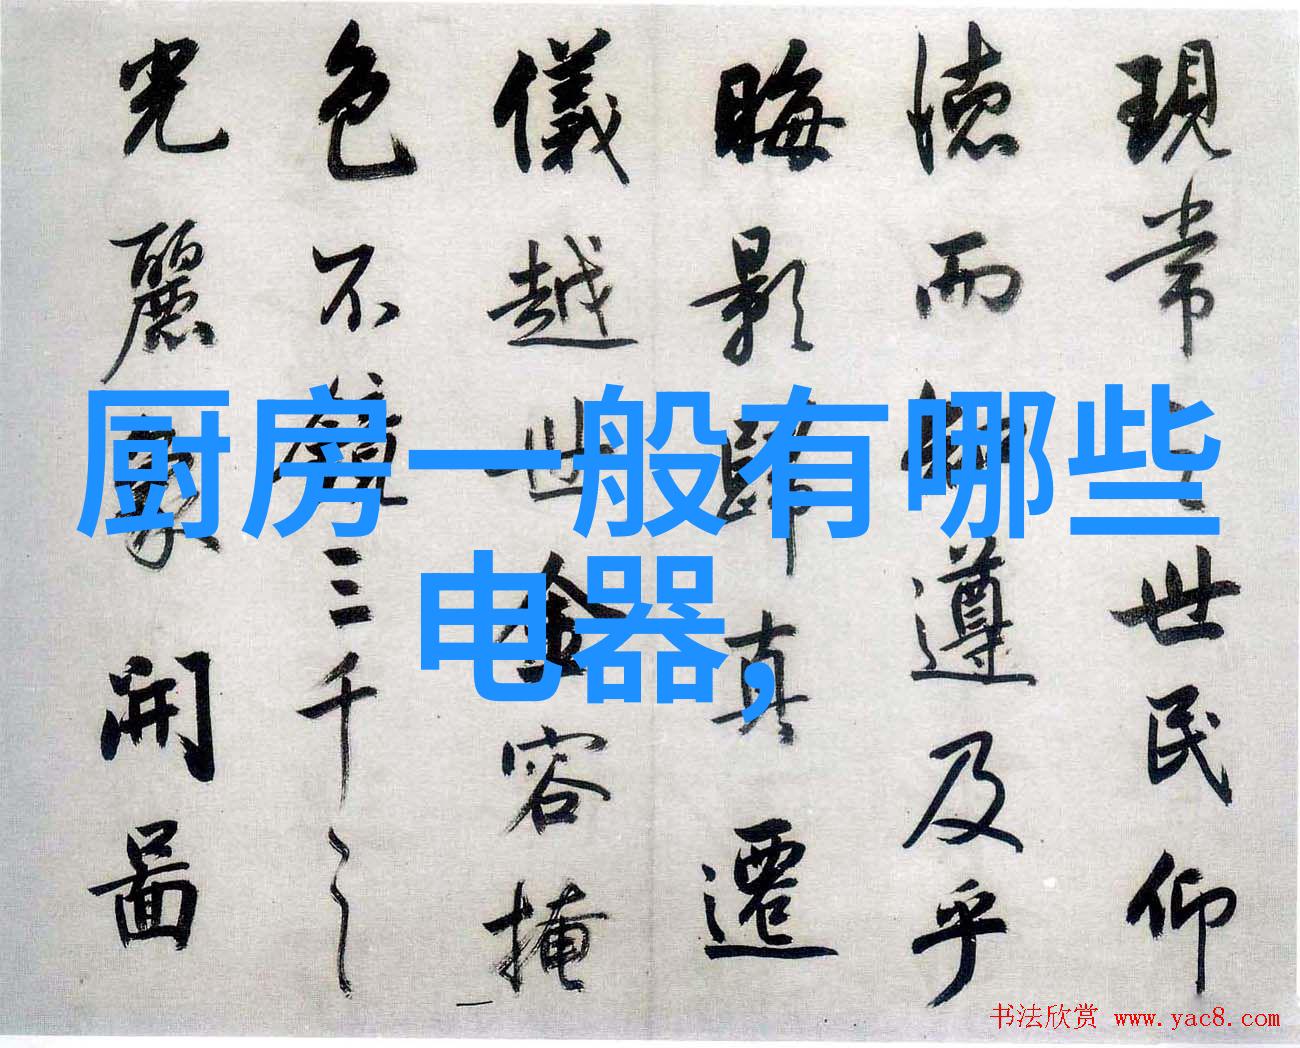 現常世民仰
德而遵及乎
晦影歸真遷
儀越世金容掩
色不鏡三千之
光麗象開圖
厨房一般有哪些
电器,
书法欣赏 www.yac8.com